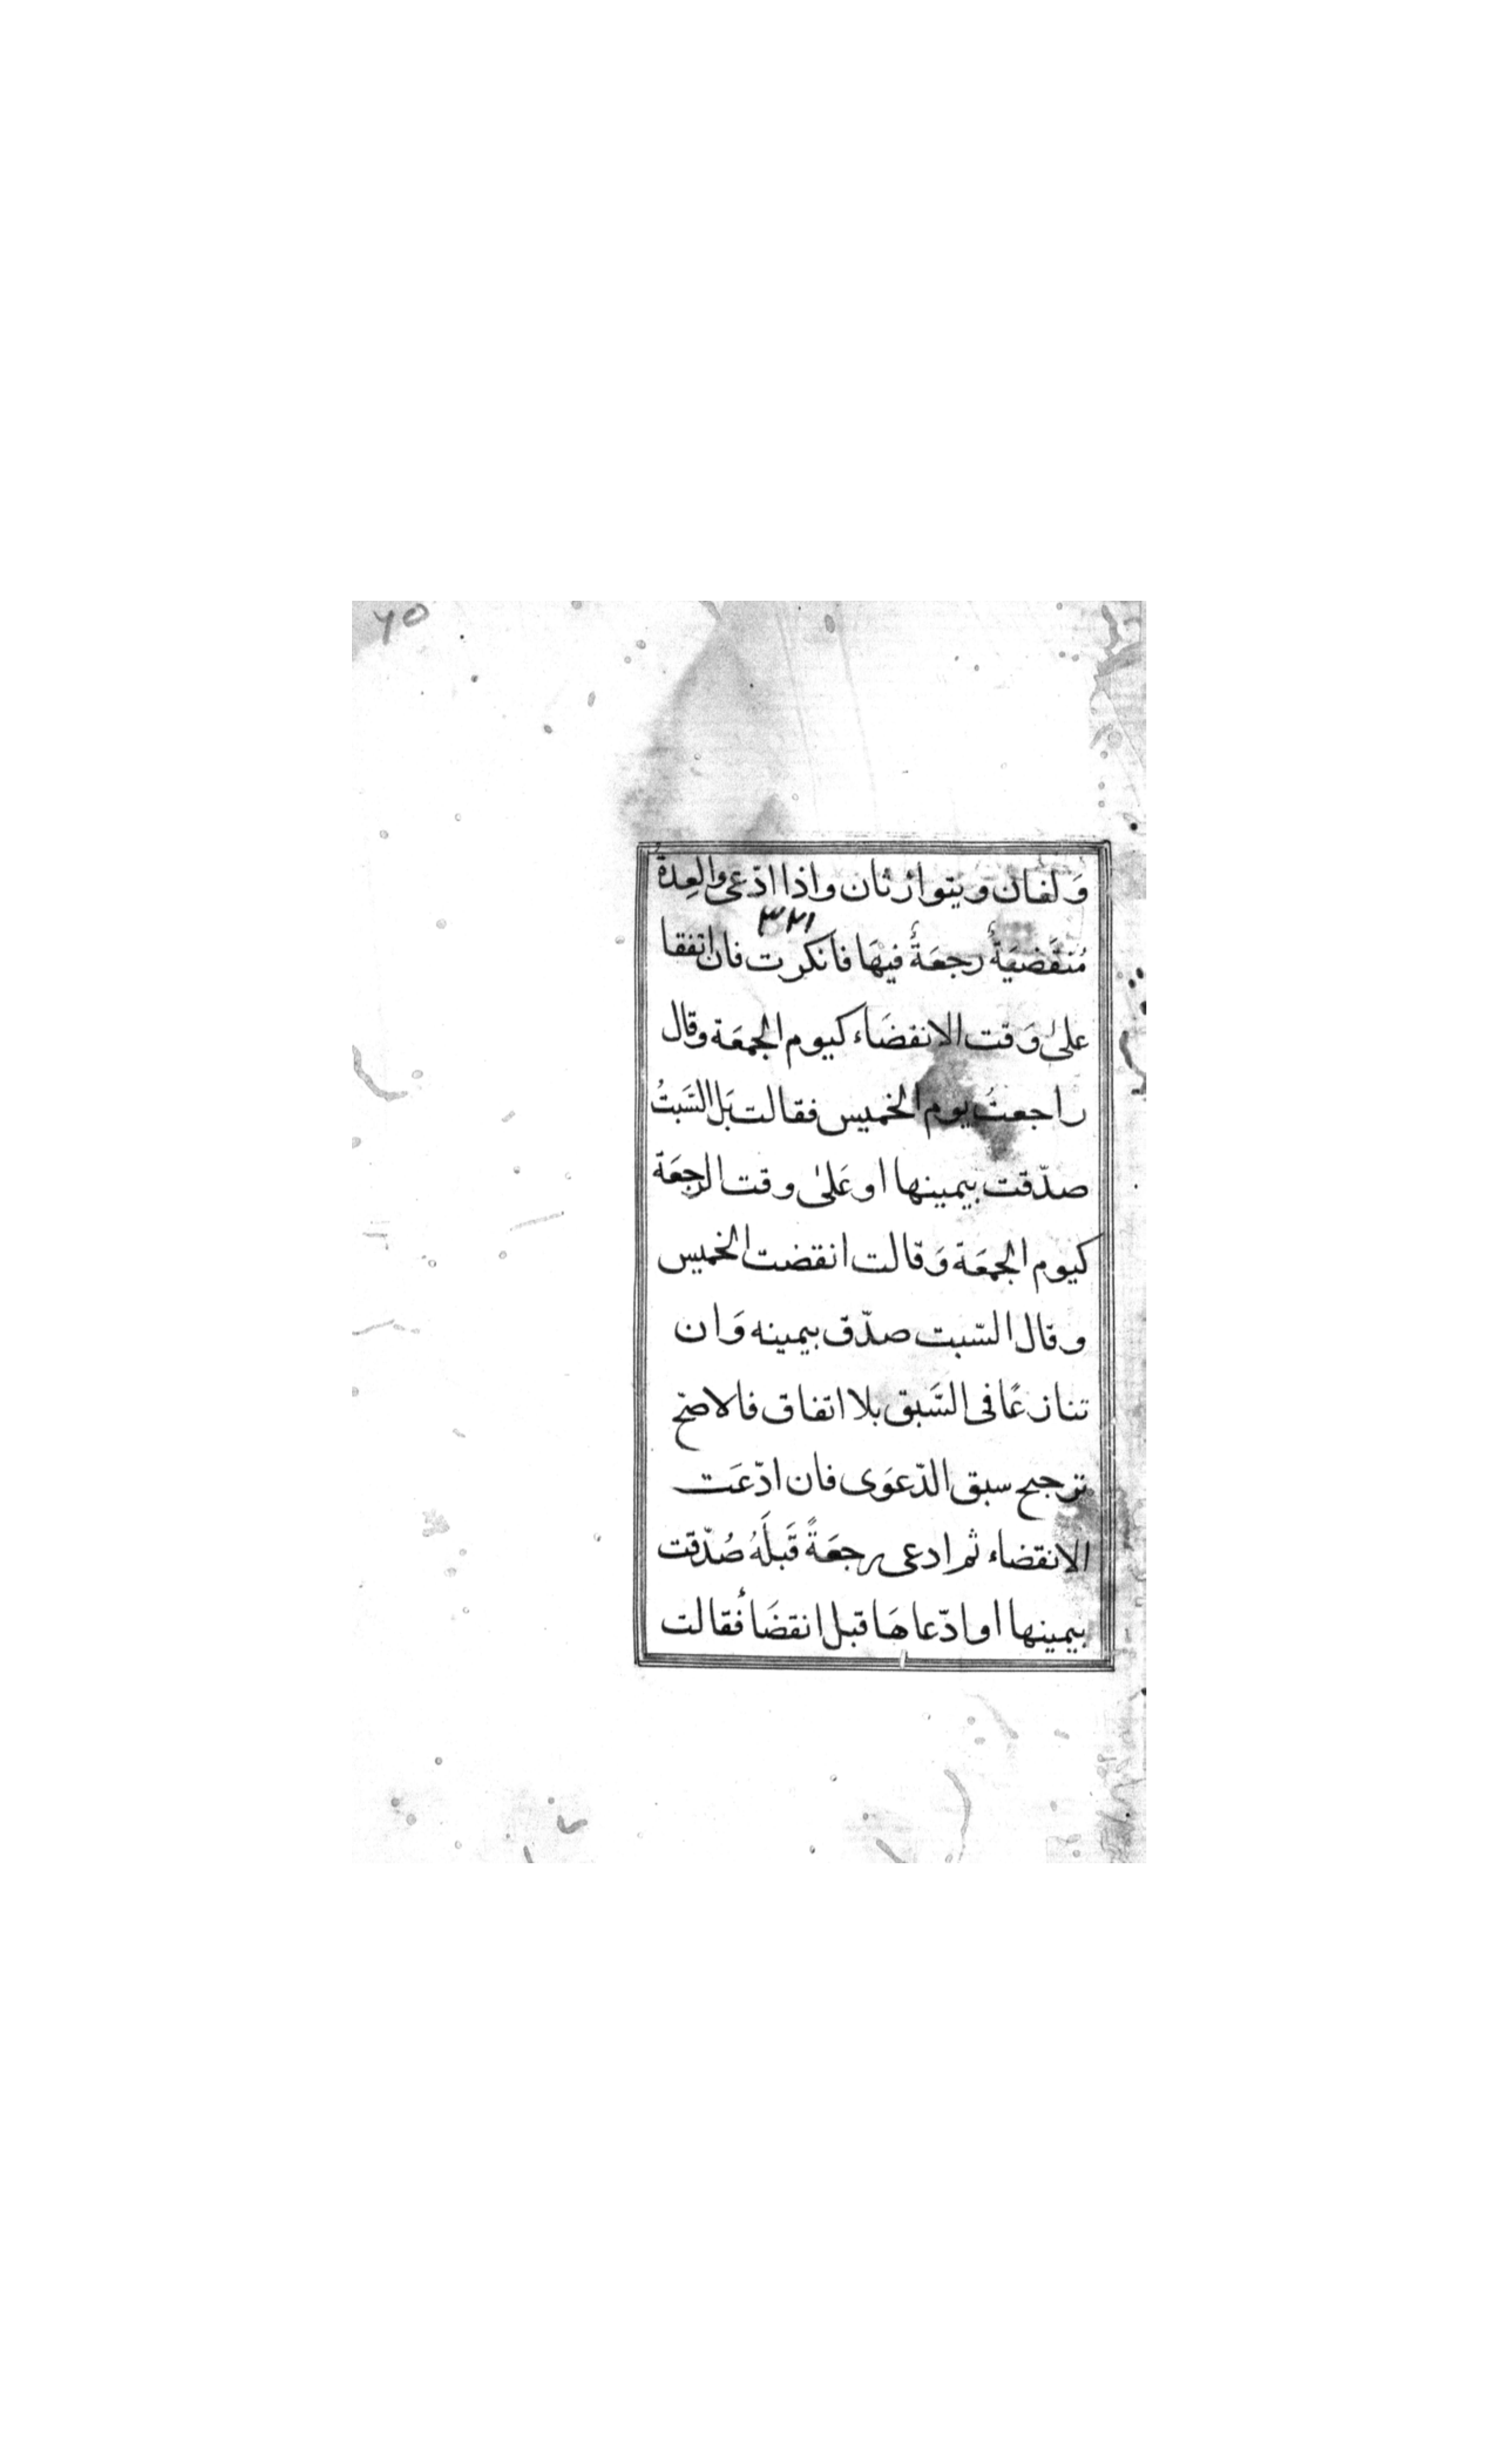 ٦٥
وَلعان ويتوارثان واذا ادّعى والعِدةُ
٣٢١
مُنقَضيَةٌ رجعَةً فيهَا فانكرت فان اتفقا
علىٰ وَقت الانقضَاء كيوم الجمعَة وقال
راجعتُ يوم الخميس فقالت بَل السَّبتُ
صدّقت بيمينها او عَلىٰ وقت الرجعَة
كيوم الجمعَة وَقالت انقضت الخميس
وقال السّبت صدّق بيمينه وَان
تنازعَا فى السَّبق بلا اتفاق فالاصحّ
ترجيح سبق الدّعوَى فان ادّعَت
الانقضاء ثم ادعى رجعَةً قَبلَهُ صُدّقت
بيمينها او ادّعاهَا قبل انقضَاء فقالت